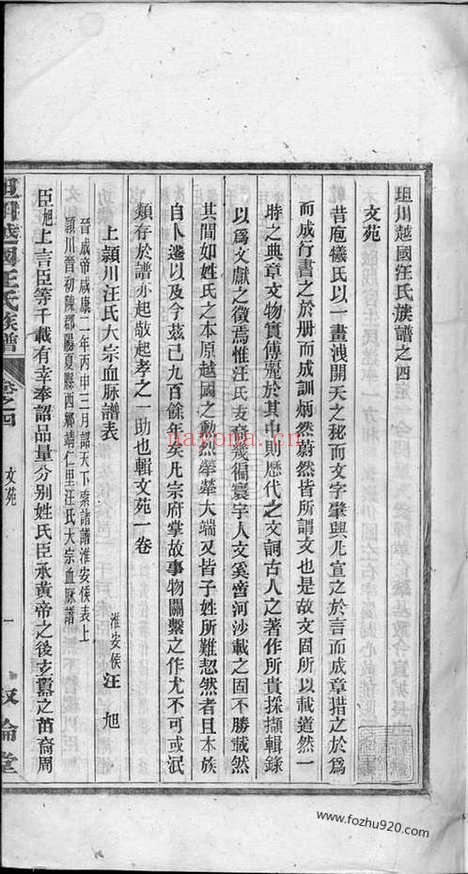 坦川越國汪氏族譜之四
文苑
昔庖犧氏以一畫洩開天之秘而文字肇與凡宣之於言而成章措之於爲
而成行書之於册而成訓炳然蔚然皆所謂文也是故文固所以載道然一
時之典章文物實傳麗於其中則歷代之文詞古人之著作所貴採擷輯錄
以爲文獻之徵焉惟汪氏支裔幾徧寰宇人文奚啻河沙載之固不勝載然
其間如姓氏之本原越國之勳烈犖犖大端又皆子姓所難恝然者且本族
自卜遷以及今茲已九百餘年矣凡宗府掌故事物關繫之作尤不可或泯
類存於譜亦起敬起孝之一助也輯文苑一卷
上潁川汪氏大宗血脉譜表
淮安侯汪旭
晉成帝咸康二年丙申三月詔天下索諸譜淮安侯表上
潁川晉初陳郡陽夏縣西鄉靖仁里汪氏大宗血脉譜
臣旭上言臣等千載有幸奉詔品量分别姓氏臣承黃帝之後玄囂之苗裔周
坦川越國汪氏族譜
卷之四
文苑
一
叙倫堂
www.fozhu920.com